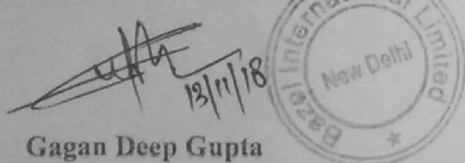 13/11/18
Bazel International Limited
New Delhi
Gagan Deep Gupta